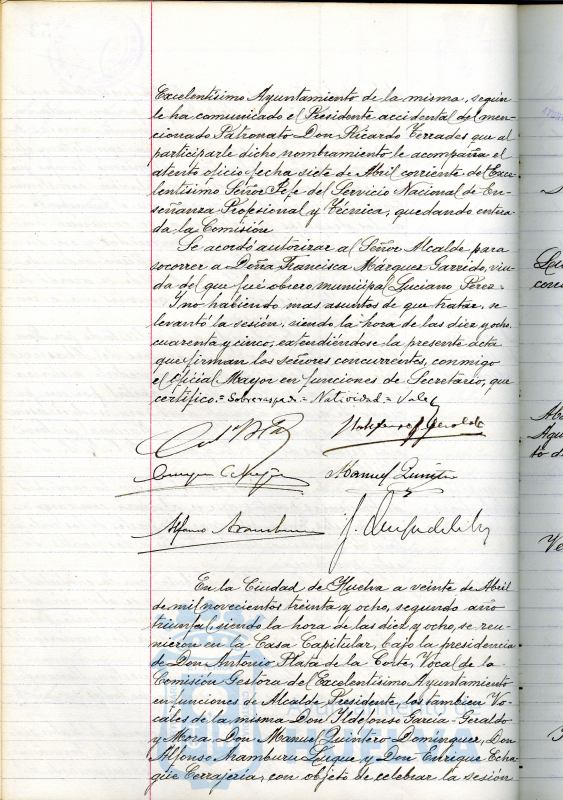 Excelentísimo Ayuntamiento de la misma, según
le ha comunicado el Presidente accidental del men-
cionado Patronato Don Ricardo Terrades que al
participarle dicho nombramiento le acompaña el
atento oficio fecha siete de Abril corriente del Exce-
lentísimo Señor Jefe del Servicio Nacional de En-
señanza Profesional y Técnica, quedando entera-
da la Comisión
Se acordó autorizar al Señor Alcalde para
socorrer a Doña Francisca Márquez Garrido, viu-
da del que fué obrero municipal Luciano Pérez.
Y no habiendo mas asuntos de que tratar, se
levantó la sesión, siendo la hora de las diez y ocho
cuarenta y cinco, extendiéndose la presente acta
que firman los señores concurrentes, conmigo
el Oficial Mayor en funciones de Secretario, que
certifico.= Sobrerraspado = Natividad = Vale
Ildefonso G Geraldo
Manuel Quintero
Alfonso Aramburu
En la Ciudad de Huelva a veinte de Abril
de mil novecientos treinta y ocho, segundo año
triunfal, siendo la hora de las diez y ocho, se reu-
nieron en la Casa Capitular, bajo la presidencia
de Don Antonio Plata de la Corte, Vocal de la
Comisión Gestora del Excelentísimo Ayuntamiento
en funciones de Alcalde Presidente, los tambien Vo-
cales de la misma Don Ildefonso Garcia-Geraldo
y Mora, Don Manuel Quintero Dominguez, Don
Alfonso Aramburu Luque y Don Enrique Echa-
güe Cerrajería, con objeto de celebrar la sesión
HUELVA